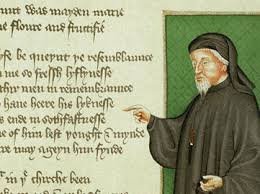 was mayden marie
floure and fructifie
lyfe be queynt ye resemblaunce
me so fressh lyflynesse
men in remembraunce
haue heere his lyknesse
ende in sothfastnesse
of him lest yought & mynde
may ageyn him fynde
in ye chirche been